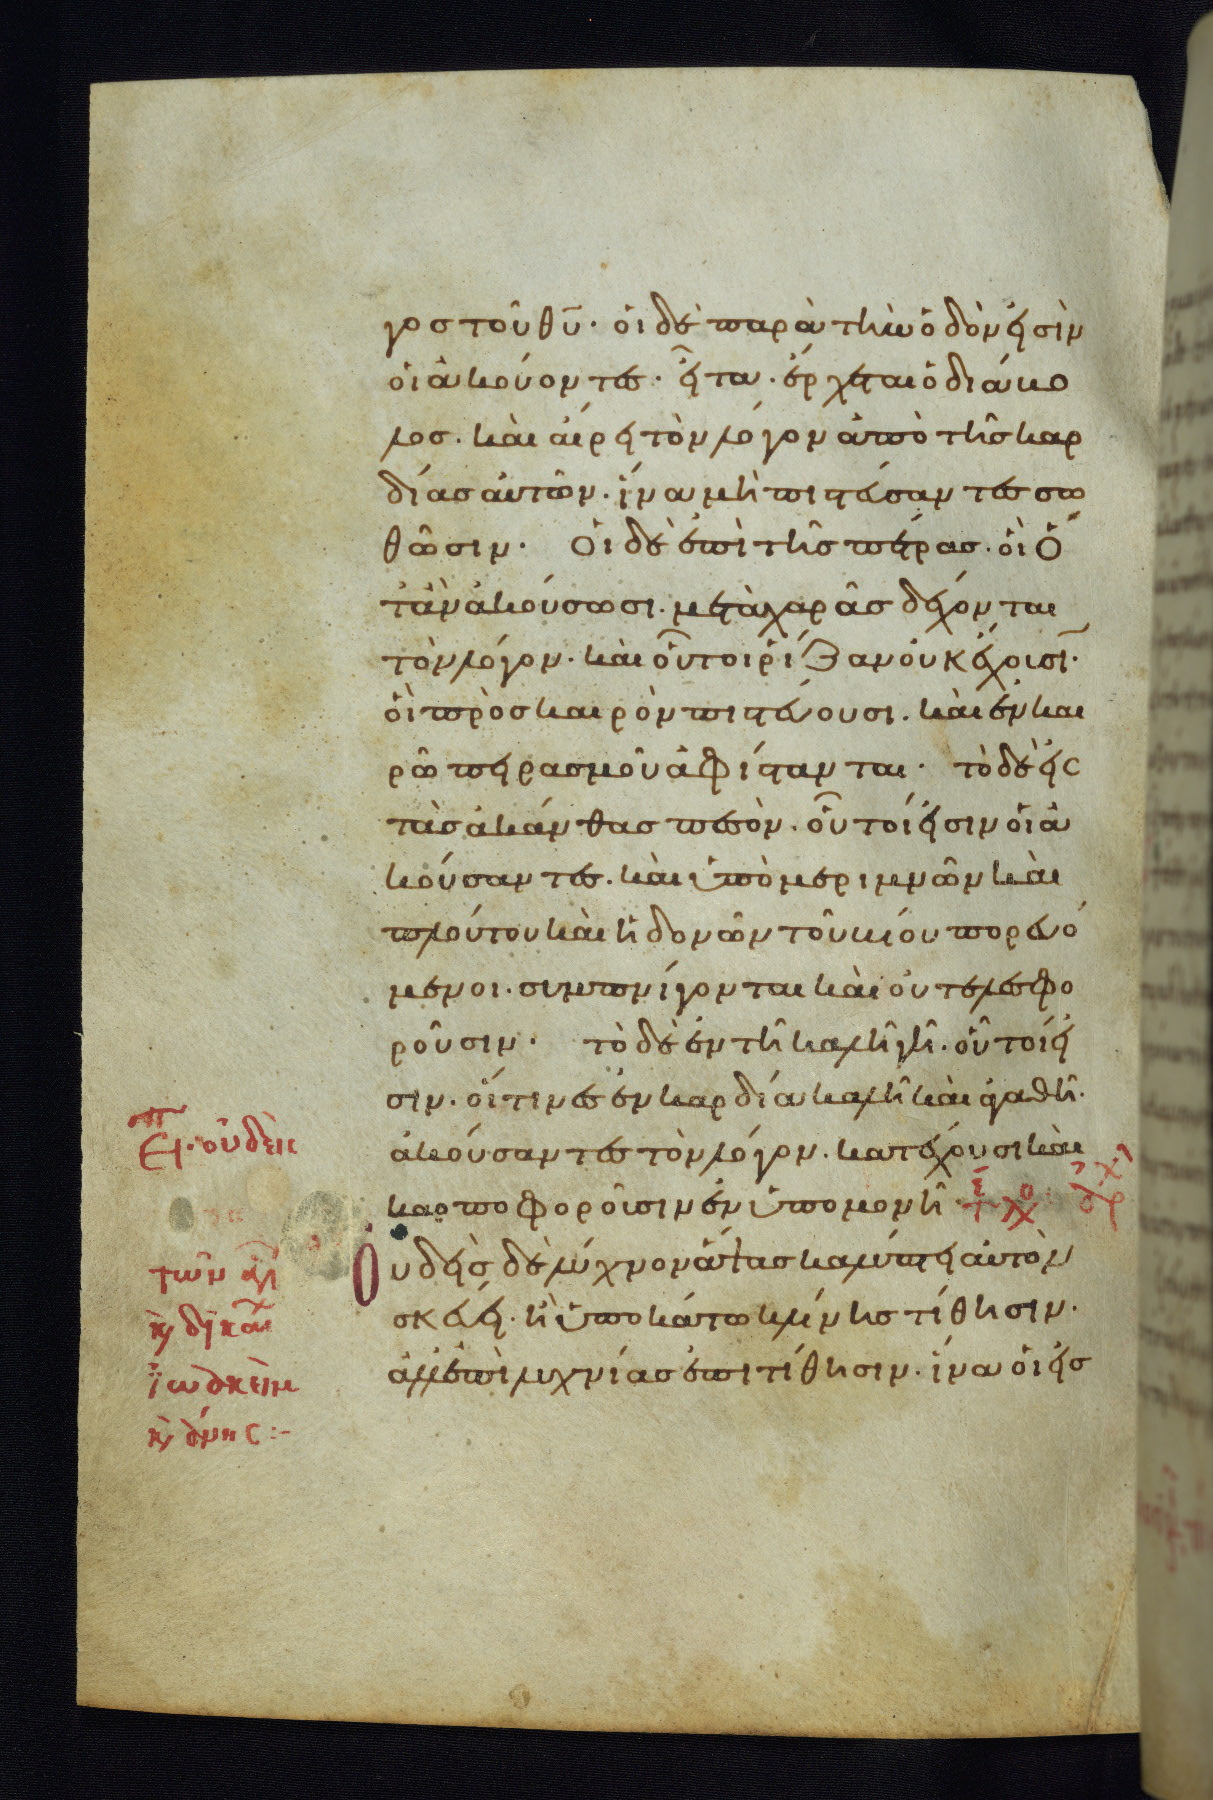 γος τοῦ θῡ· οἱ δὲ παρὰ τὴν ὁδόν εἰσὶν
οἱ ἀκούοντες· εἶτα· ἔρχεται ὁ διάβο
λος· καὶ αἴρει τὸν λόγον ἀπὸ τῆς καρ
δίας αὐτῶν· ἵνα μὴ πιστεύσαντες σω
θῶσιν· Οἱ δὲ ἐπὶ τῆς πέτρας· οἳ ὅ
τἂν ἀκούσωσι· μετὰ χαρᾶς δέχονται
τὸν λόγον· καὶ οὗτοι ρίζαν οὐκ ἔχουσι·
οἳ πρὸς καιρὸν πιστεύουσι· καὶ ἐν και
ρῶ πειρασμοῦ ἀφίστανται· τὸ δὲ εἰς
τὰς ἀκάνθας πεσὸν· οὗτοί εἰσιν οἱ ἀ
κούσαντες· καὶ ὑπὸ μεριμνῶν καὶ
πλούτου καὶ ἡδονῶν τοῦ βίου πορευό
μενοι· συμπνίγονται καὶ οὐ τελεσφο
ροῦσιν· τὸ δὲ ἐν τῆ καλῆ γῆ· οὗτοί εἰ
σιν· οἵτινες ἐν καρδία καλῆ καὶ ἀγαθῆ·
ἀκούσαντες τὸν λόγον· κατέχουσι καὶ
καρποφοροῦσιν ἐν ὑπομονῆ·
οὐδεὶς
Οὐδεὶς δὲ λύχνον ἅψας καλύπτει αὐτὸν
σκεύει· ἢ ὑποκάτω κλίνης τίθησιν·
ἀλλ' ἐπὶ λυχνίας ἐπιτίθησιν· ἵνα οἱ εἰσ
τῶν